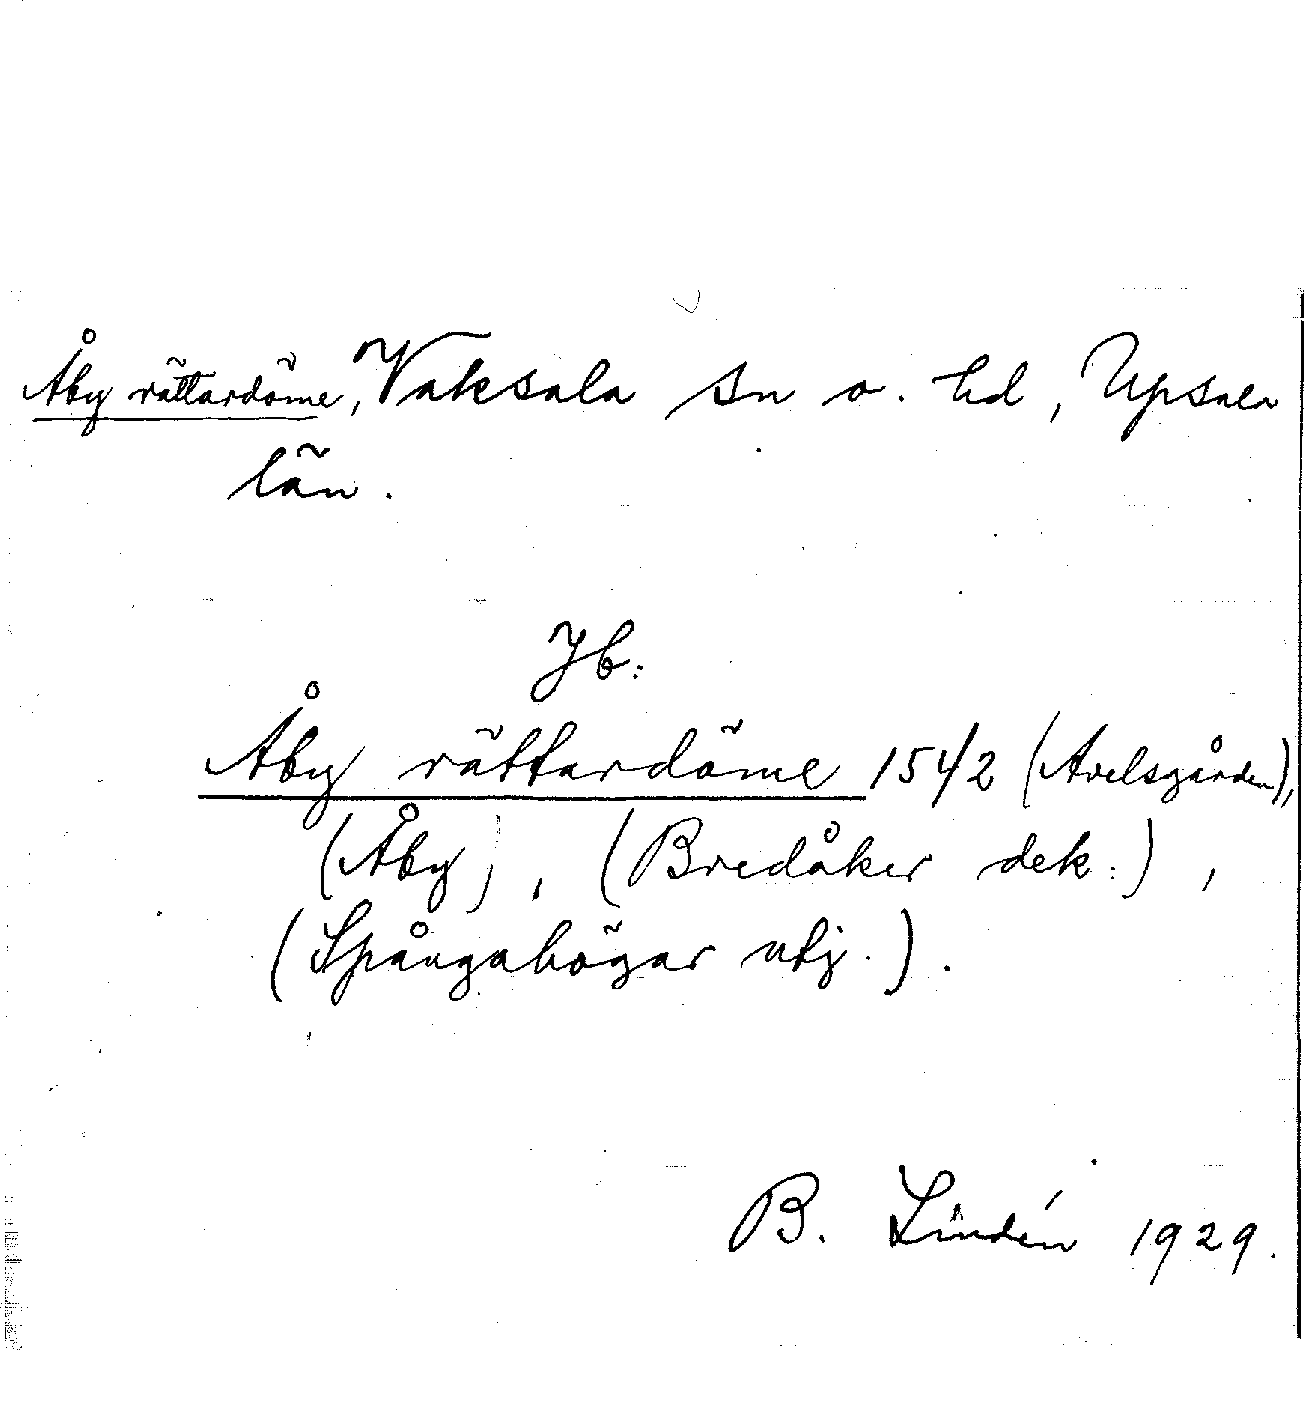 Åby rättardöme, Vaksala sn o. hd, Upsala
län.
Jb:
Åby rättardöme 1542 (Avelsgården),
(Åby), (Bredåker dek:),
(Spångahögar utj.).
B. Lindén 1929.